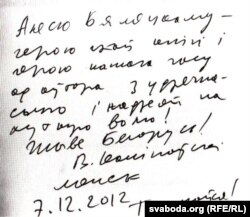 Алесю Бяляцкаму –
герою маёй кнігі і
герою нашага часу
ад аўтара З удзячна-
сьцю і надзеяй на
хуткую волю!
Жыве Беларусь!
В. Каліноўскі
Менск
7.12.2012
svaboda.org (RFE/RL)